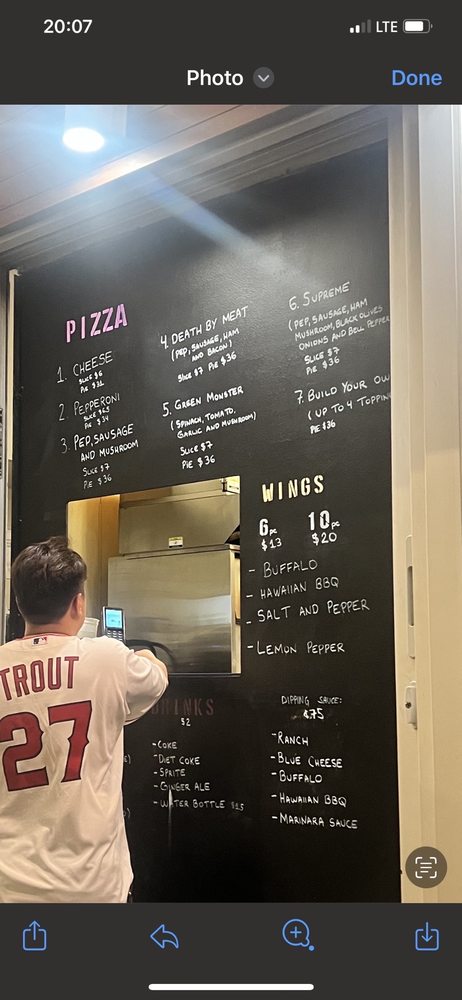 20:07
LTE
Photo
Done
PIZZA
1. CHEESE
SLICE $6
PIE $32
2. PEPPERONI
SLICE $6.5
PIE $34
3. PEP, SAUSAGE
AND MUSHROOM
SLICE $7
PIE $36
4. DEATH BY MEAT
(PEP, SAUSAGE, HAM
AND BACON)
SLICE $7 PIE $36
5. GREEN MONSTER
(SPINACH, TOMATO,
GARLIC AND MUSHROOM)
SLICE $7
PIE $36
6. SUPREME
(PEP, SAUSAGE, HAM
MUSHROOM, BLACK OLIVES
ONIONS AND BELL PEPPER
SLICE $7
PIE $36
7. BUILD YOUR OW
(UP TO 4 TOPPIN
PIE $36
WINGS
6pc 10pc
$13 $20
- BUFFALO
- HAWAIIAN BBQ
- SALT AND PEPPER
- LEMON PEPPER
DRINKS
$2
- COKE
- DIET COKE
- SPRITE
- GINGER ALE
- WATER BOTTLE $1.5
DIPPING SAUCE:
$.75
- RANCH
- BLUE CHEESE
- BUFFALO
- HAWAIIAN BBQ
- MARINARA SAUCE
TROUT
27